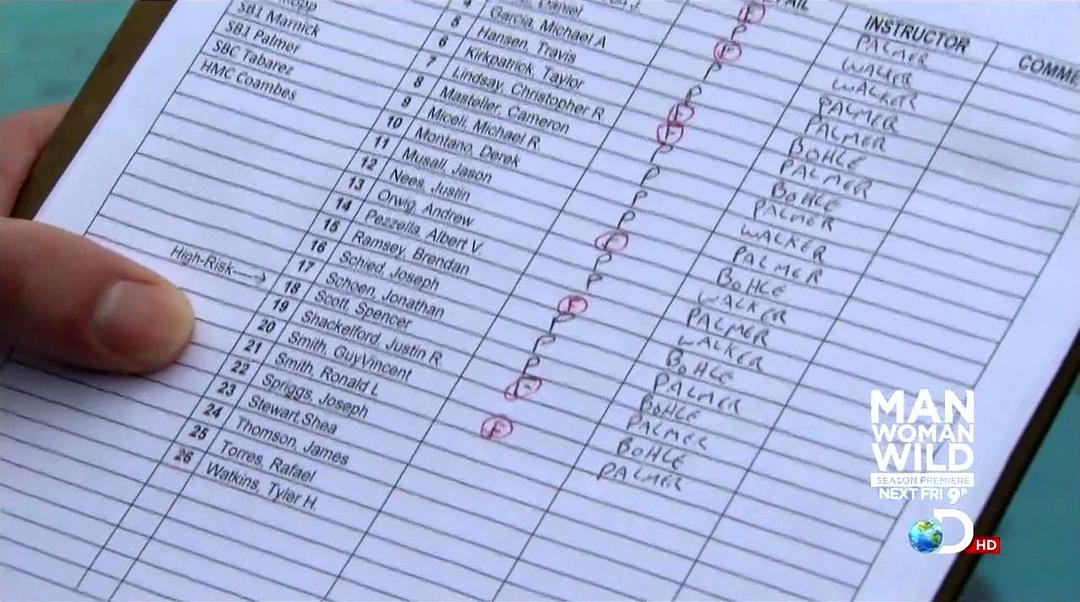 SB1 Marnick
SB1 Palmer
SBC Tabarez
HMC Coambes
High-Risk
4 Garcia, Michael A
5 Hansen, Travis
6 Kirkpatrick, Taylor
7 Lindsay, Christopher R.
8 Masteller, Cameron
9 Miceli, Michael R.
10 Montano, Derek
11 Musall, Jason
12 Nees, Justin
13 Orwig, Andrew
14 Pezzella, Albert V.
15 Ramsey, Brendan
16 Schied, Joseph
17 Schoen, Jonathan
18 Scott, Spencer
19 Shackelford, Justin R.
20 Smith, GuyVincent
21 Smith, Ronald L
22 Spriggs, Joseph
23 Stewart,Shea
24 Thomson, James
25 Torres, Rafael
26 Watkins, Tyler H.
F
P
F
P
P
F
F
P
P
P
P
F
P
P
F
P
P
P
F
F
INSTRUCTOR
PALMER
WALKER
WALKER
PALMER
PALMER
BOHLE
PALMER
BOHLE
PALMER
WALKER
PALMER
BOHLE
WALKER
PALMER
WALKER
BOHLE
PALMER
BOHLE
PALMER
BOHLE
PALMER
COMME
MAN
WOMAN
WILD
SEASON PREMIERE
NEXT FRI 9P
D HD